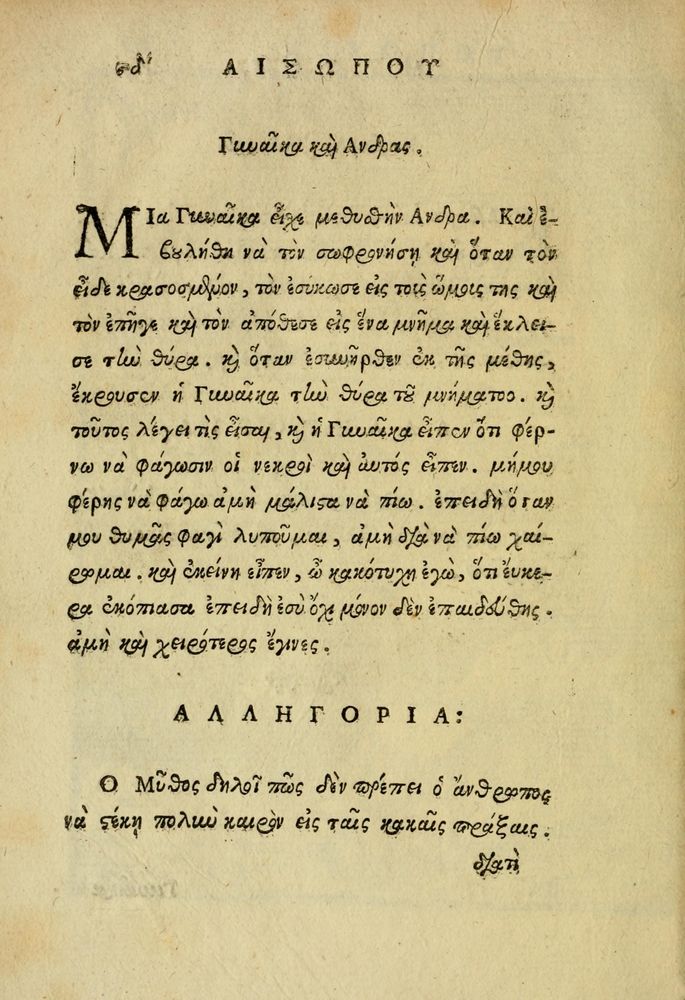 ϟδ' ΑΙΣΩΠΟΥ
Γυναῖκα καὶ Ανδρας.
ΜΙα Γυναῖκα εἶχε μεθυθὴν Ανδρα. Καὶ ἐ-
βουλήθη νὰ τὸν σωφρονήσῃ καὶ ὅταν τὸν
εἶδε κρασοσμένον, τὸν ἐσύκωσε εἰς τοὺς ὤμοις της καὶ
τὸν ἐπῆγε καὶ τὸν ἀπόθεσε εἰς ἕνα μνῆμα καὶ ἔκλει-
σε τὴν θύρα. καὶ ὅταν ἐσυνῆρθεν ἐκ τῆς μέθης,
ἔκρουσεν ἡ Γυναῖκα τὴν θύρα τοῦ μνήματος. καὶ
τοῦτος λέγει τὶς εἶσαι, καὶ ἡ Γυναῖκα εἶπεν ὅτι φέρ-
νω νὰ φάγωσιν οἱ νεκροὶ καὶ ἀυτός εἶπεν. μήμου
φέρης νὰ φάγω ἀμὴ μάλιστα νὰ πίω. ἐπειδὴ ὅταν
μου θυμᾶς φαγὶ λυποῦμαι, ἀμὴ διὰ νὰ πίω χαί-
ρομαι. καὶ ἐκείνη εἶπεν, ὦ κακότυχη ἐγὼ, ὅτι ἔυκε-
ρα ἐκόπιασα ἐπειδὴ ἐσὺ ὄχι μόνον δὲν ἐπαιδεύθης.
ἀμὴ καὶ χειρότερος ἔγινες.
ΑΛΛΗΓΟΡΙΑ:
Ο Μῦθος δηλοῖ πῶς δὲν πρέπει ὁ ἄνθρωπος
νὰ στέκη πολὺν καιρὸν εἰς ταῖς κακαῖς πράξαις.
διατὶ